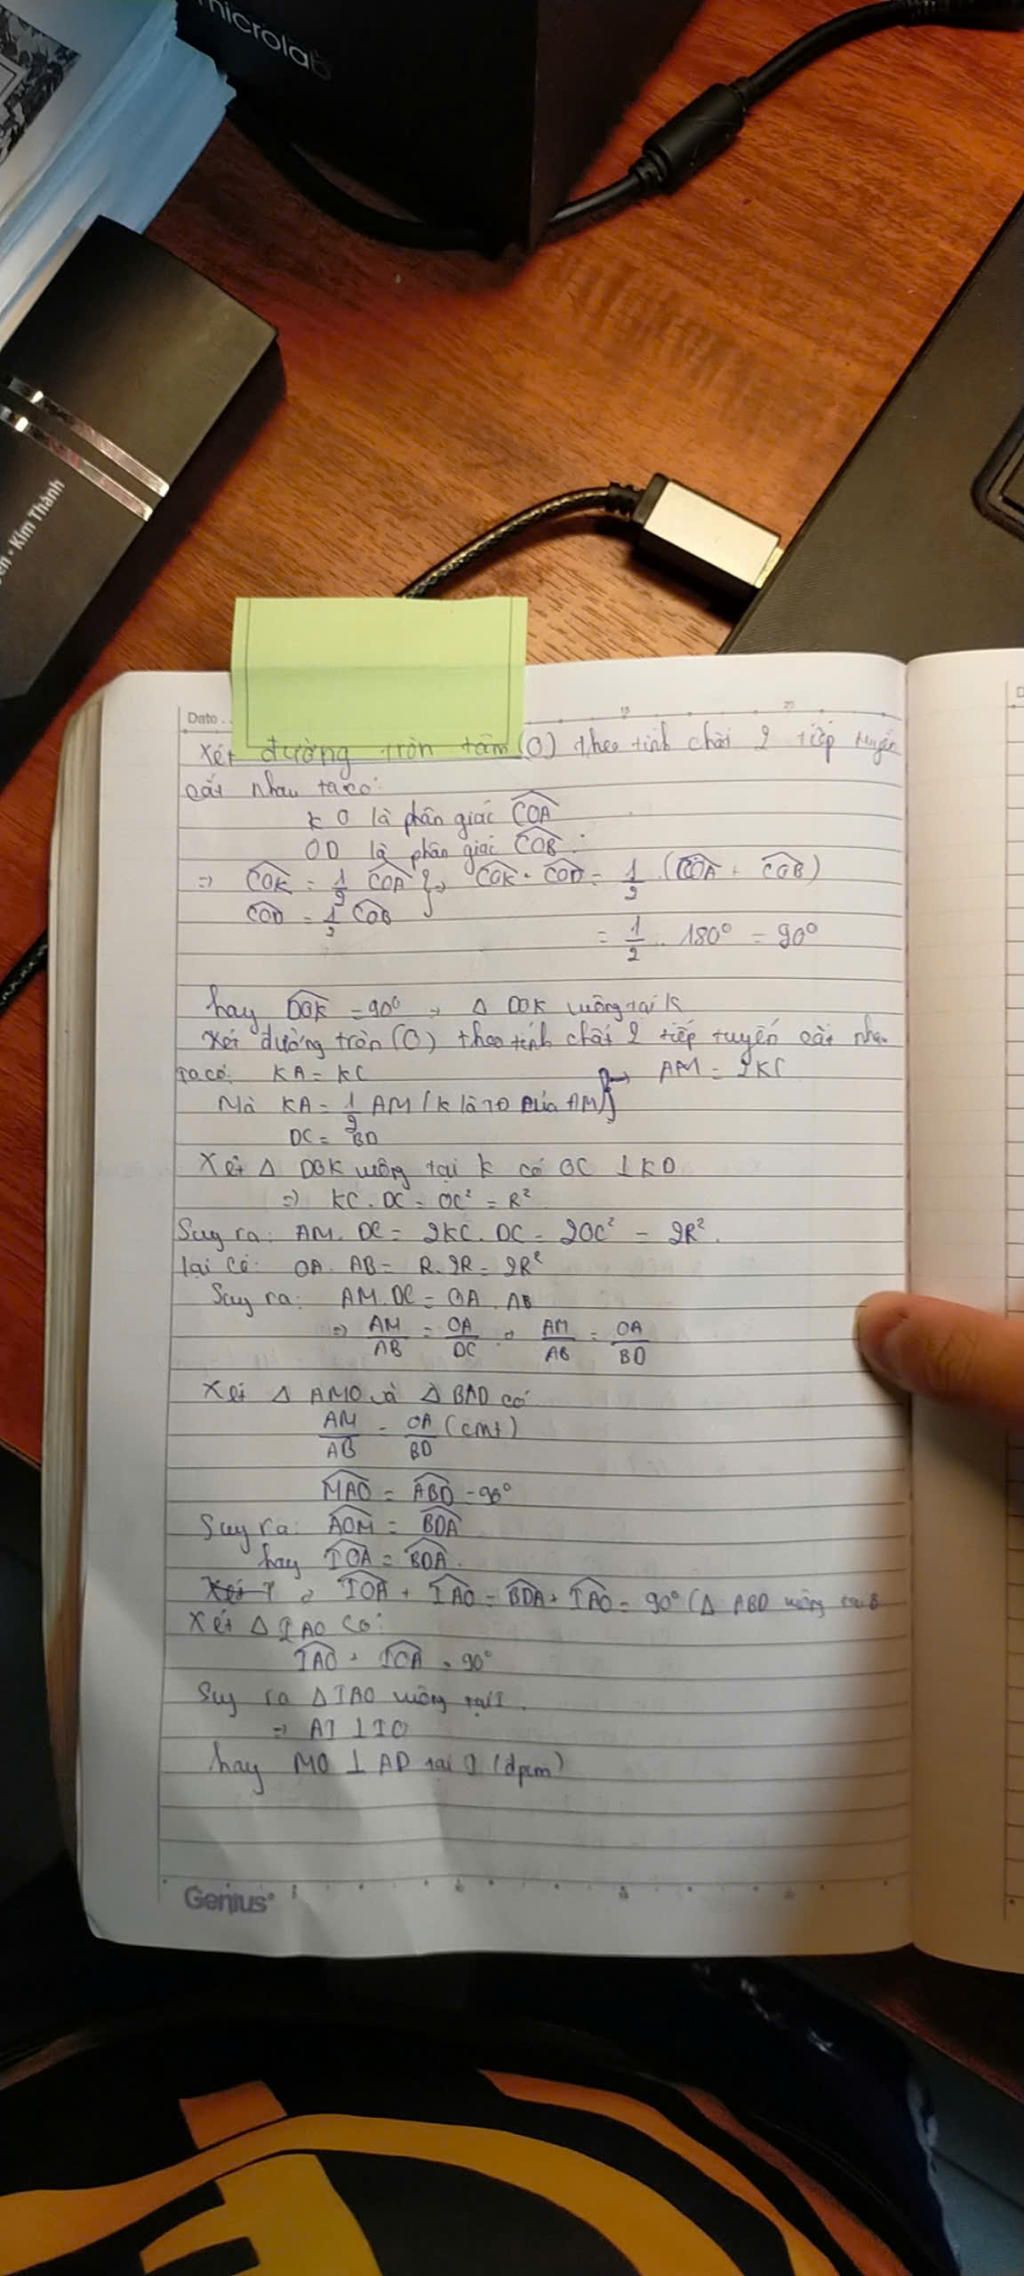 microlab
Kim Thành
Date
15
20
Xét đường tròn tâm (O) theo tính chất 2 tiếp tuyến
cắt nhau ta có:
KO là phân giác COA
OD là phân giác COB
=> COK = 1/2 COA } => COK + COD = 1/2 . (COA + COB)
COD = 1/2 COB
= 1/2 . 180° = 90°
hay DOK = 90° → Δ DOK vuông tại K
Xét đường tròn (O) theo tính chất 2 tiếp tuyến cắt nhau
ta có: KA = KC → AM = 2KC
Mà KA = 1/2 AM (K là TĐ của AM)
DC = BD
Xét Δ DOK vuông tại K có OC ⊥ KD
=> KC . DC = OC² = R²
Suy ra: AM . DC = 2KC . DC = 2OC² = 2R².
Lại có: OA . AB = R . 2R = 2R²
Suy ra: AM . DC = OA . AB
=> AM/AB = OA/DC → AM/AB = OA/BD
Xét Δ AMO và Δ BAD có
AM/AB = OA/BD (cmt)
MAO = ABD = 90°
Suy ra: AOM = BDA
hay IOA = BDA.
IOA + IAO = BDA + IAO = 90° (Δ ABD vuông tại B
Xét Δ IAO có:
IAO + IOA = 90°
Suy ra Δ IAO vuông tại I.
=> AI ⊥ IO
hay MO ⊥ AD tại I (đpcm)
Genius